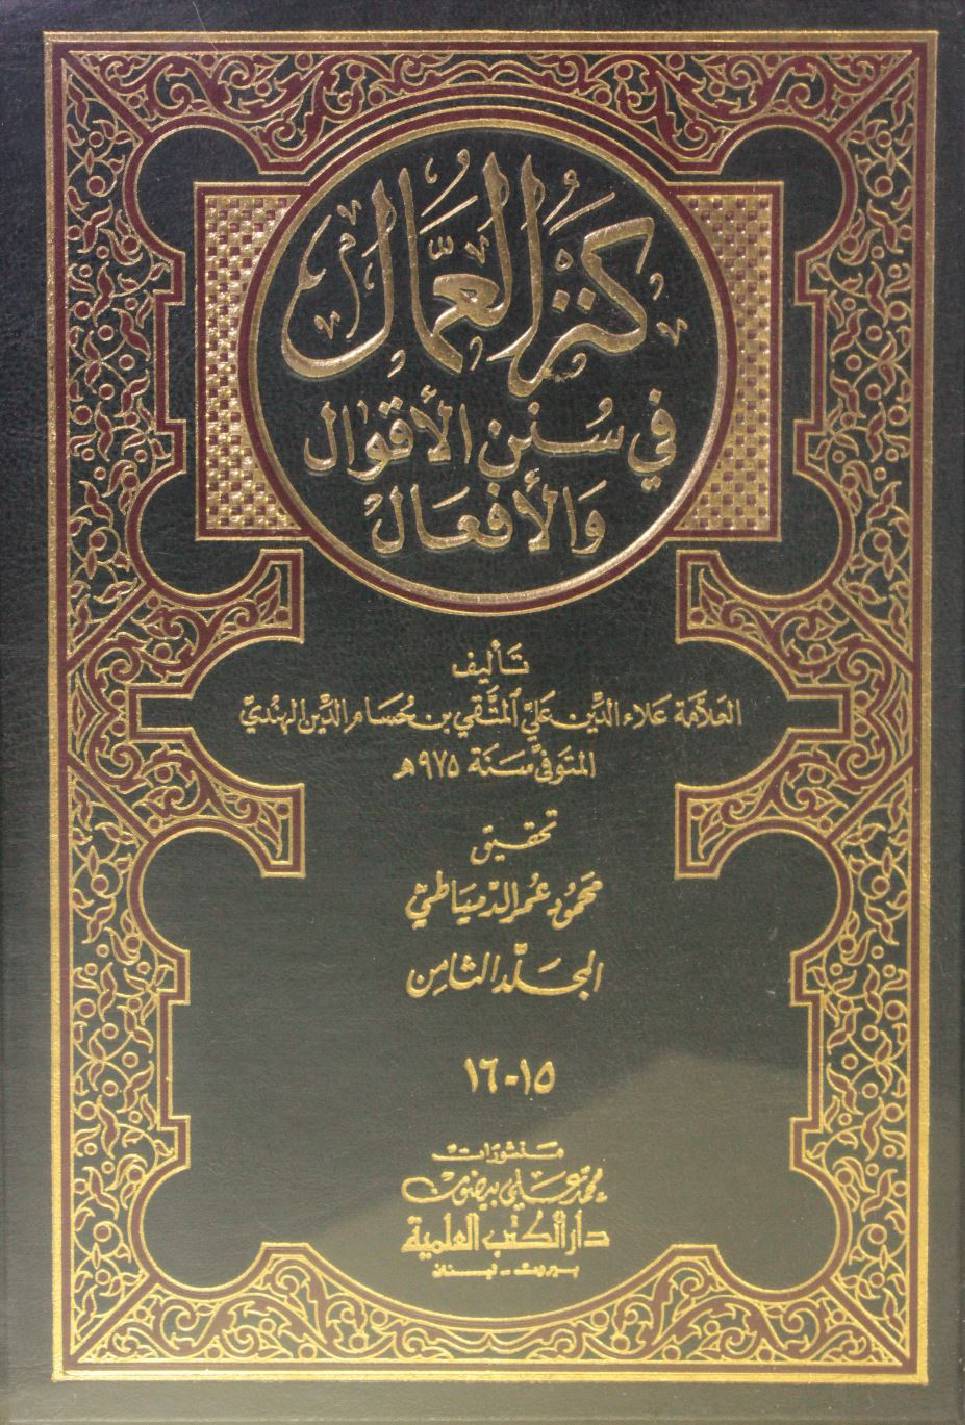 كنز العمال
في سنن الأقوال
والأفعال
تأليف
العلامة علاء الدين علي المتقي بن حسام الدين الهندي
المتوفى سنة ٩٧٥ هـ
تحقيق
محمود عمر الدمياطي
المجلد الثامن
١٥-١٦
منشورات
محمد علي بيضون
دار الكتب العلمية
بيروت - لبنان